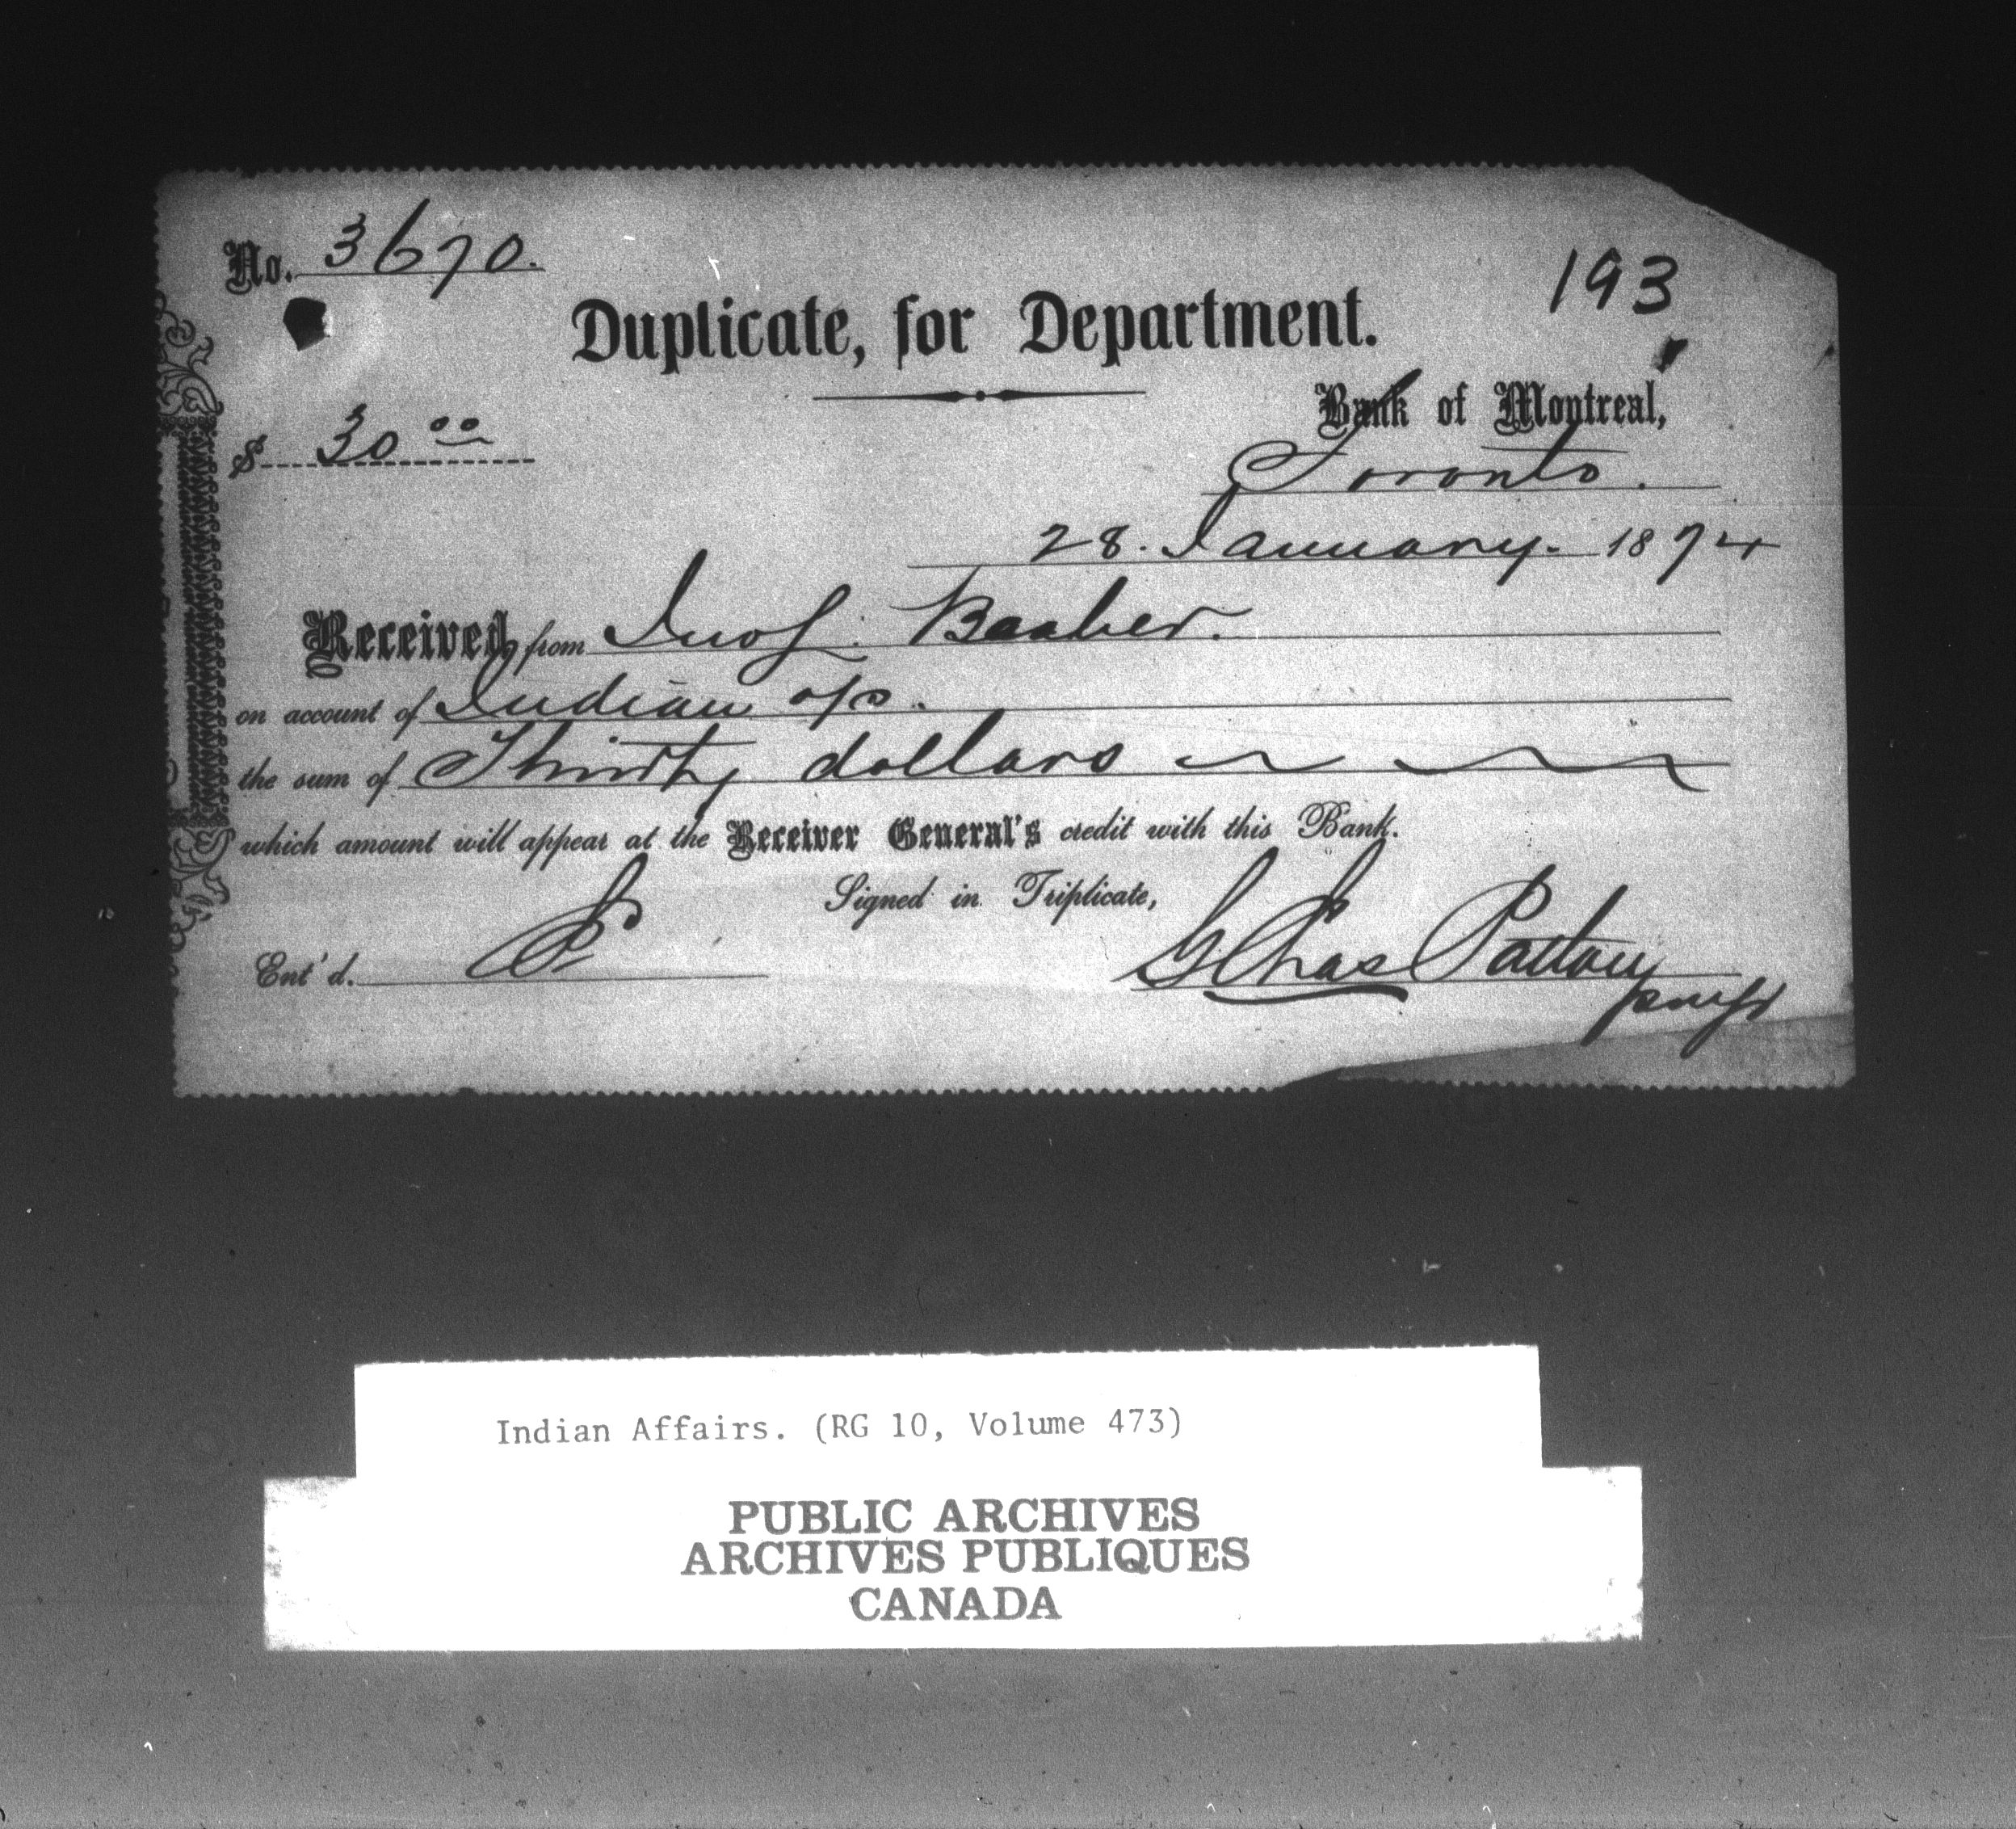 No. 3670.
193
Duplicate, for Department.
Bank of Montreal,
$ 30 00
Toronto.
28. January. 1874
Received, from Jno
on account of Indian a/c.
the sum of Thirty dollars
which amount will appear at the Receiver General's credit with this Bank.
Signed in Triplicate,
Ent'd.
Chas Patton
Indian Affairs. (RG 10, Volume 473)
PUBLIC ARCHIVES
ARCHIVES PUBLIQUES
CANADA